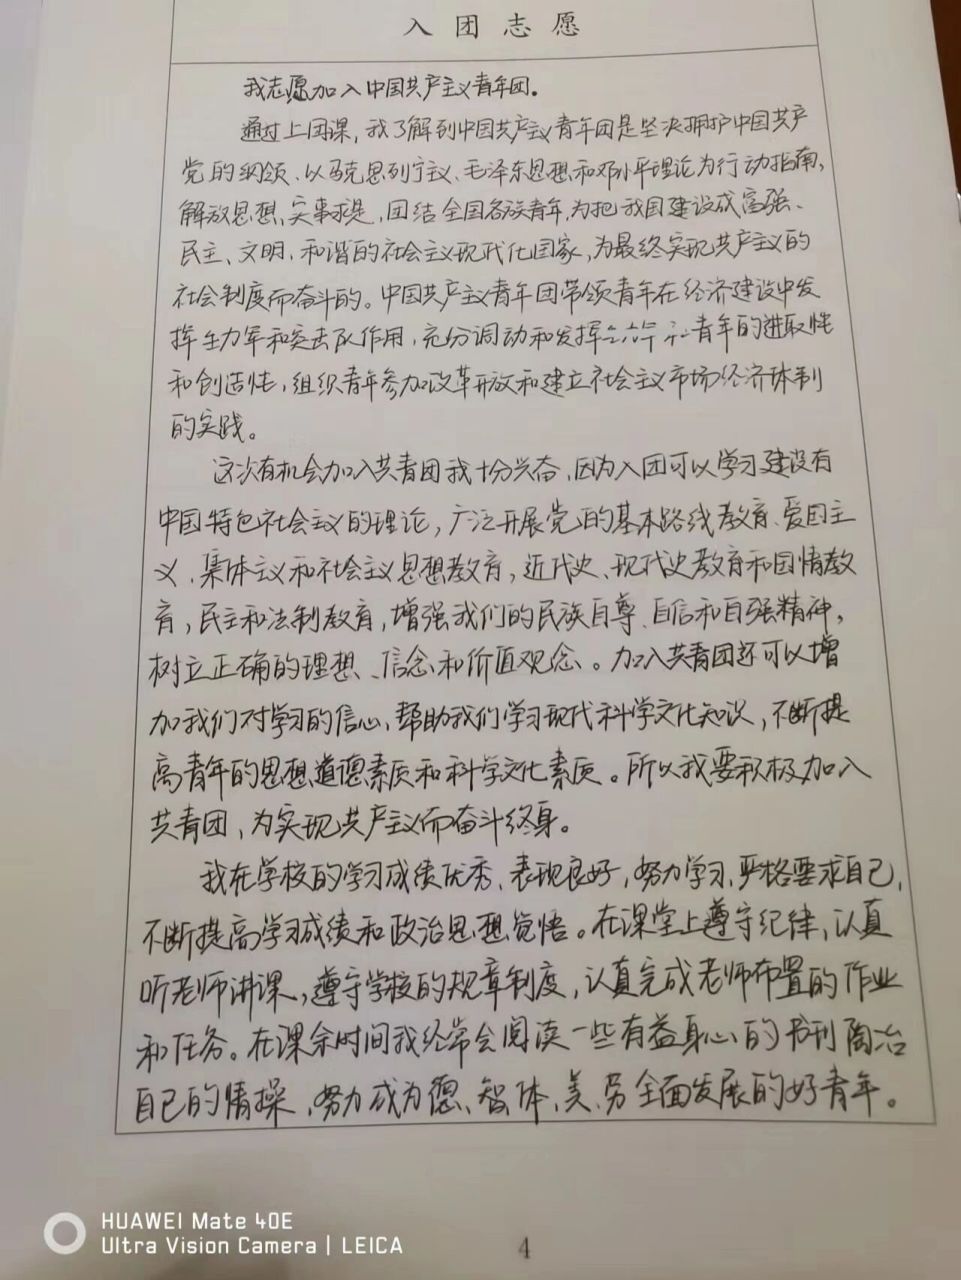 入团志愿
我志愿加入中国共产主义青年团。
通过上团课，我了解到中国共产主义青年团是坚决拥护中国共产
党的纲领、以马克思列宁主义、毛泽东思想和邓小平理论为行动指南，
解放思想，实事求是，团结全国各族青年，为把我国建设成富强、
民主、文明，和谐的社会主义现代化国家，为最终实现共产主义的
社会制度而奋斗的。中国共产主义青年团带领青年在经济建设中发
挥生力军和突击队作用，充分调动和发挥青年的进取性
和创造性，组织青年参加改革开放和建立社会主义市场经济体制
的实践。
这次有机会加入共青团我十分兴奋，因为入团可以学习建设有
中国特色社会主义的理论，广泛开展党的基本路线教育、爱国主
义、集体主义和社会主义思想教育，近代史、现代史教育和国情教
育，民主和法制教育，增强我们的民族自尊、自信和自强精神，
树立正确的理想、信念和价值观念。加入共青团还可以增
加我们对学习的信心，帮助我们学习现代科学文化知识，不断提
高青年的思想道德素质和科学文化素质。所以我要积极加入
共青团，为实现共产主义而奋斗终身。
我在学校的学习成绩优秀，表现良好，努力学习，严格要求自己，
不断提高学习成绩和政治思想觉悟。在课堂上遵守纪律，认真
听老师讲课，遵守学校的规章制度，认真完成老师布置的作业
和任务。在课余时间我经常会阅读一些有益身心的书刊陶冶
自己的情操，努力成为德、智、体、美、劳全面发展的好青年。
HUAWEI Mate 40E
Ultra Vision Camera | LEICA
4